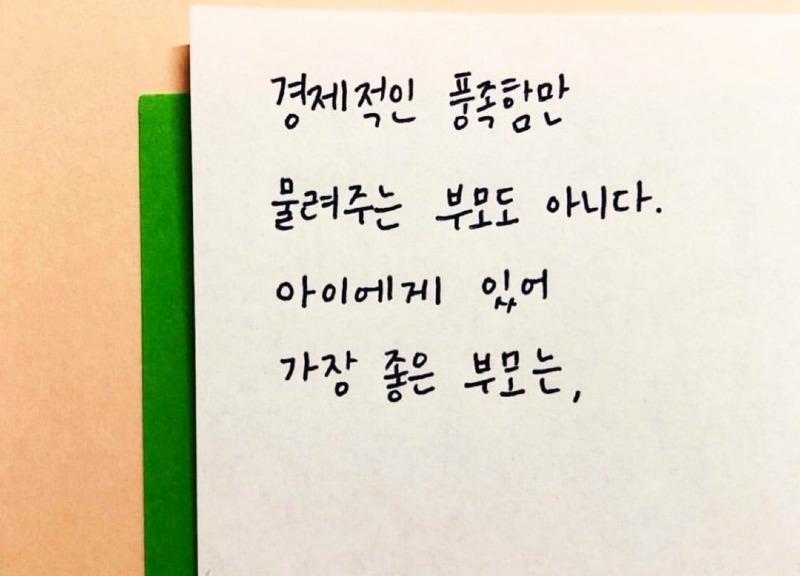 경제적인 풍족함만
물려주는 부모도 아니다.
아이에게 있어
가장 좋은 부모는,